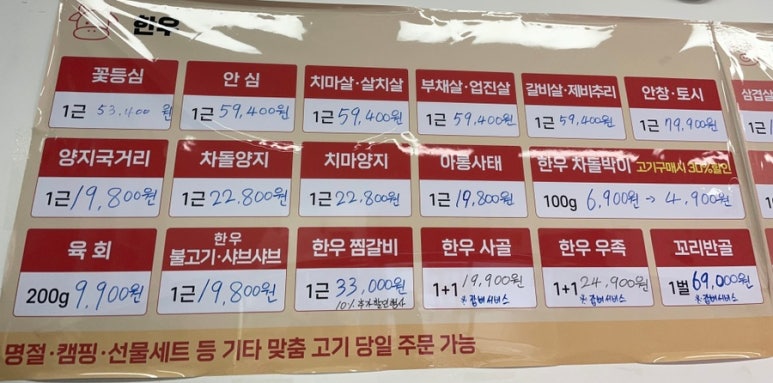 한우
꽃등심 안심 치마살·살치살 부채살·업진살 갈비살·제비추리 안창·토시 삼겹살
1근 53,400원 1근 59,400원 1근 59,400원 1근 59,400원 1근 59,400원 1근 79,900원
양지국거리 차돌양지 치마양지 아롱사태 한우 차돌박이 고기구매시 30%할인
1근 19,800원 1근 22.800원 1근 22.800원 1근 19,800원 100g 6,900원 → 4,900원
육회 한우 불고기·샤브샤브 한우 찜갈비 한우 사골 한우 우족 꼬리반골
200g 9,900원 1근 19,800원 1근 33,000원 1+1 19,900원 1+1 24,900원 1벌 69,000원
10% 추가할인행사 ※잡뼈서비스 ※잡뼈서비스 ※잡뼈서비스
명절·캠핑·선물세트 등 기타 맞춤 고기 당일 주문 가능